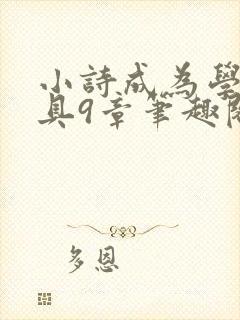 小詩成為學
具9章筆趣閱
多恩